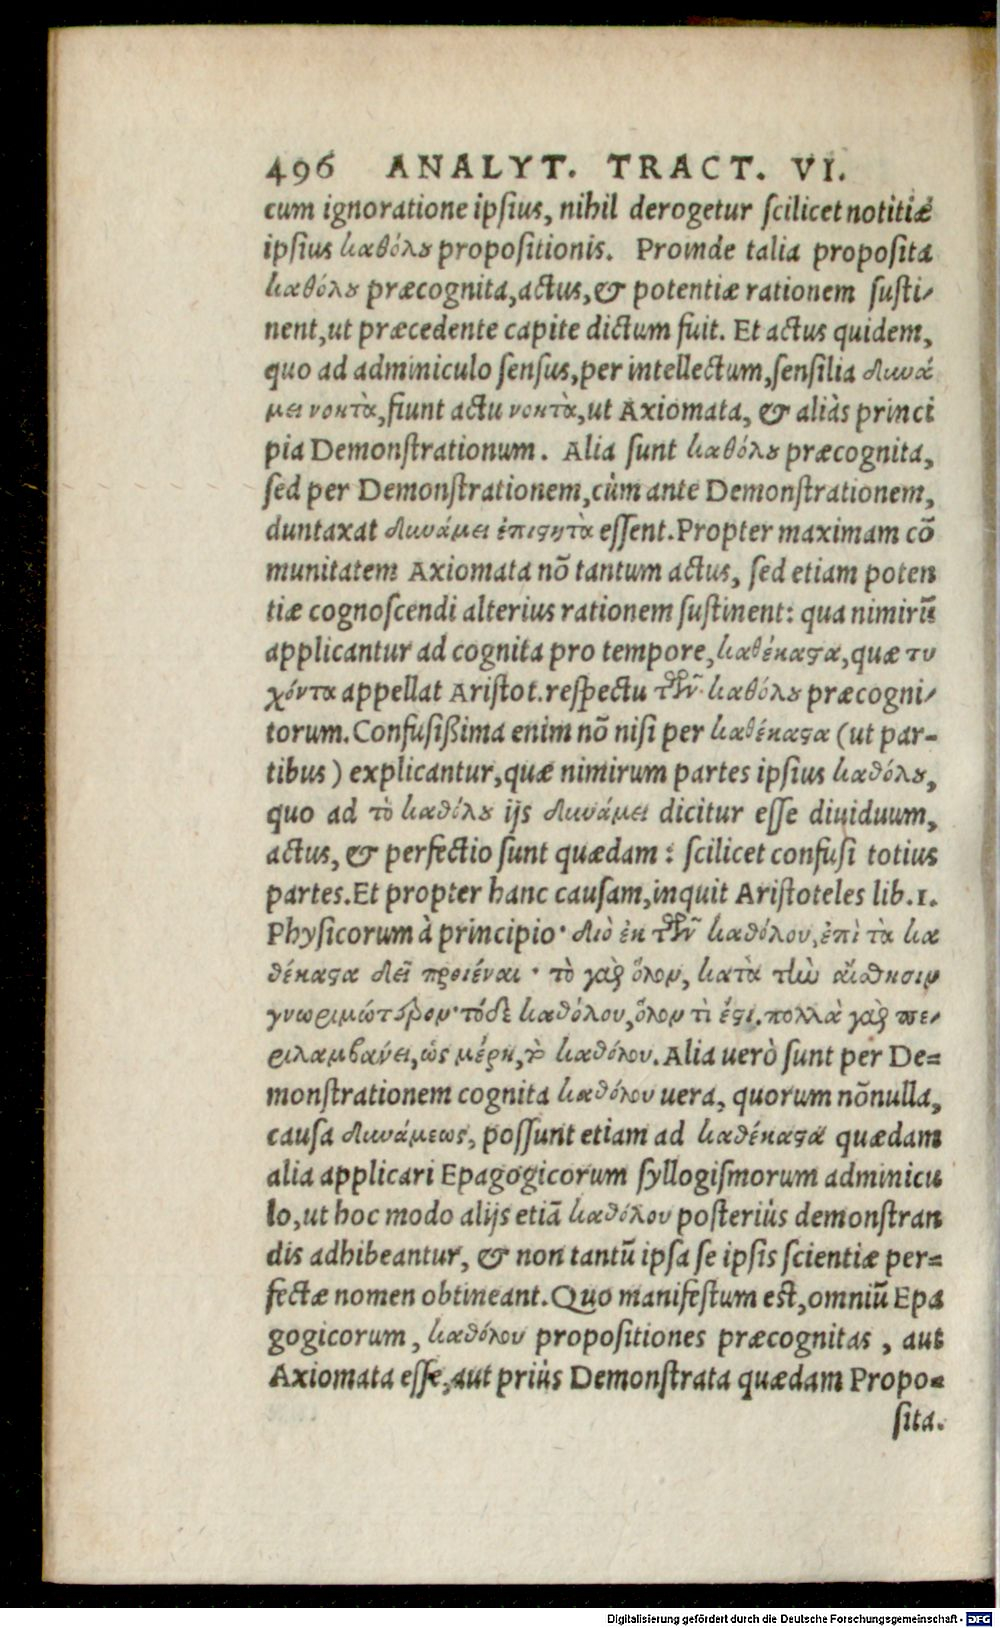 496 ANALYT. TRACT. VI.
cum ignoratione ipſius, nihil derogetur ſcilicet notitiæ
ipſius καθόλȣ propoſitionis. Proinde talia propoſita
καθόλȣ præcognita, actus, & potentiæ rationem ſuſti-
nent, ut præcedente capite dictum fuit. Et actus quidem,
quo ad adminiculo ſenſus, per intellectum, ſenſilia δυνά
μει νοητὰ, fiunt actu νοητὰ, ut Axiomata, & aliàs princi
pia Demonſtrationum. Alia ſunt καθόλȣ præcognita,
ſed per Demonſtrationem, cùm ante Demonſtrationem,
duntaxat δυνάμει ἐπιϛητὰ eſſent. Propter maximam cõ
munitatem Axiomata nõ tantum actus, ſed etiam poten
tiæ cognoſcendi alterius rationem ſuſtinent: qua nimirũ
applicantur ad cognita pro tempore, καθέκαϛα, quæ τυ
χόντα appellat Ariſtot. reſpectu τῶν καθόλȣ præcogni-
torum. Confuſißima enim nõ niſi per καθέκαϛα (ut par-
tibus) explicantur, quæ nimirum partes ipſius καθόλȣ,
quo ad τὸ καθόλȣ ijs δυνάμει dicitur eſſe diuiduum,
actus, & perfectio ſunt quædam: ſcilicet confuſi totius
partes. Et propter hanc cauſam, inquit Ariſtoteles lib. 1.
Phyſicorum à principio· διὸ ἐκ τῶν καθόλου, ἐπὶ τὰ κα
θέκαϛα δεῖ προιέναι· τὸ γὰρ ὅλον, κατὰ τὴν αἴσθησιν
γνωριμώτερον· τόδε καθόλου, ὅλον τὶ ἐϛι. πολλὰ γὰρ πε-
ριλαμβάνει, ὡς μέρη, τὸ καθόλου. Alia uerò ſunt per De-
monſtrationem cognita καθόλου uera, quorum nõnulla,
cauſa δυνάμεως, poſſunt etiam ad καθέκαϛα quædam
alia applicari Epagogicorum ſyllogiſmorum adminicu
lo, ut hoc modo alijs etiã καθόλου poſteriùs demonſtran
dis adhibeantur, & non tantũ ipſa ſe ipſis ſcientiæ per-
fectæ nomen obtineant. Quo manifeſtum eſt, omniũ Epa
gogicorum, καθόλου propoſitiones præcognitas, aut
Axiomata eſſe, aut priùs Demonſtrata quædam Propo-
ſita.
Digitalisierung gefördert durch die Deutsche Forschungsgemeinschaft - DFG